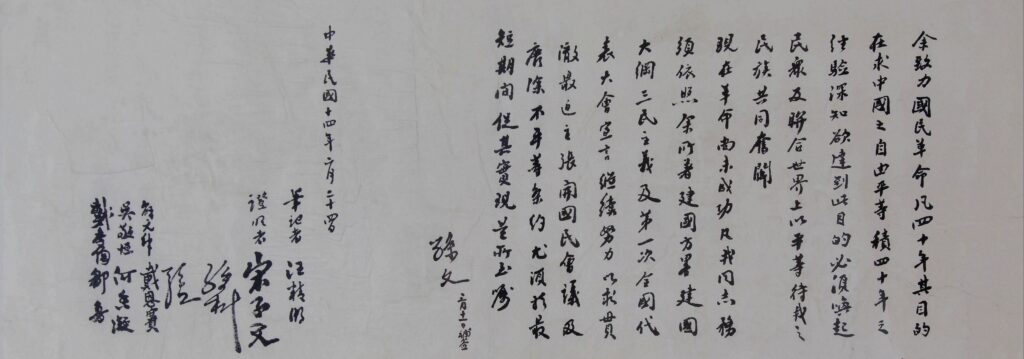 余致力國民革命凡四十年其目的
在求中國之自由平等積四十年之
經驗深知欲達到此目的必須喚起
民衆及聯合世界上以平等待我之
民族共同奮鬭
現在革命尚未成功凡我同志務
須依照余所著建國方畧建國
大綱三民主義及第一次全國代
表大會宣言繼續努力以求貫
澈最近主張開國民會議及
廢除不平等條約尤須於最
短期間促其實現是所至囑
孫文 三月十一日補簽
中華民國十四年二月二十四日
筆記者 汪精衛
證明者 宋子文
孫科
邵元沖 戴恩賽
吳敬恆 何香凝
戴季陶 鄒魯